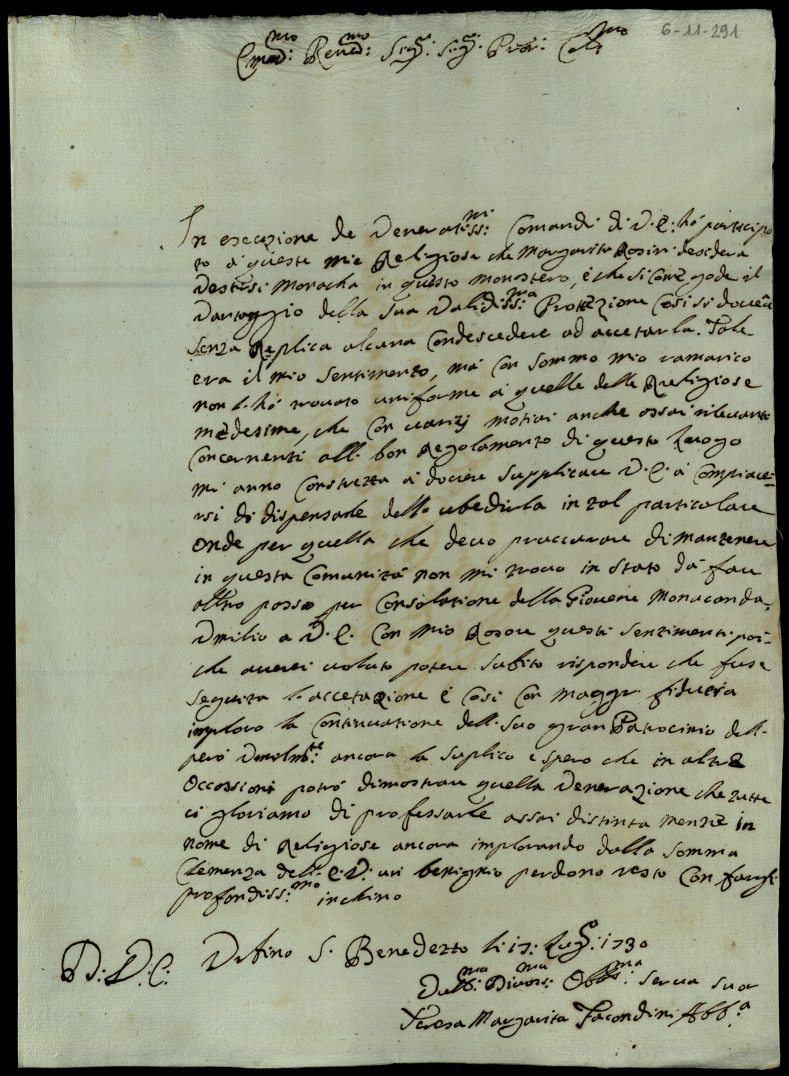 6-11-291
Em.mo Rev.mo Sig.r Sig.r Pron: Col.mo
In esecuzione de Veneratiss.mi Comandi di V.E: hò partecipa
to à queste mie Religiose che Margarita Rosini desidera
Vestirsi Monacha in questo monastero, è che si come gode il
Vantaggio della sua Validiss.ma Protezione Così si dovea
senza Replica alcuna Condescedere ad accetarla. Tale
era il mio sentimento, mà con sommo mio ramarico
non l'hò trovato uniforme à quelle delle Religiose
medesime, che con varij motivi anche assai rilevante
Concernenti all. bon Regolamento di questo Luogo
mi anno Constretta à dovere supplicare V.E. à Compiace=
rsi di dispensarle dell. ubedirla in tal particolare
onde per quella che devo proccurare di mantenere
in questa Comunità non mi trovo in stato dà fare
altro passo per Consolatione della Giovene Monacanda.
Vmilio a V.E. con mio Rosore questi sentimenti poi=
che averei voluto potere subito rispondere che fuse
seguita l'accetazione è Così con maggr. fiducia
imploro la Continuatione dell. suo gran Patrocinio dell.
però Vmilm.te ancora la suplico e spero che in altre
Occassioni potrò dimostrare quella Venerazione che tutte
ci gloriamo di professarle assai distinta mente in
nome di Religiose ancora implorando dalla somma
Clemenza dell. E.V. un benignio perdono resto con fargli
profondiss.mo inchino
D: V. E: Vrbino S. Benedetto li 17: Lug.o 1730
Vm.ma Divotis.ma Obb.ma serva suor
Teresa Margarita Facondini Abb.a